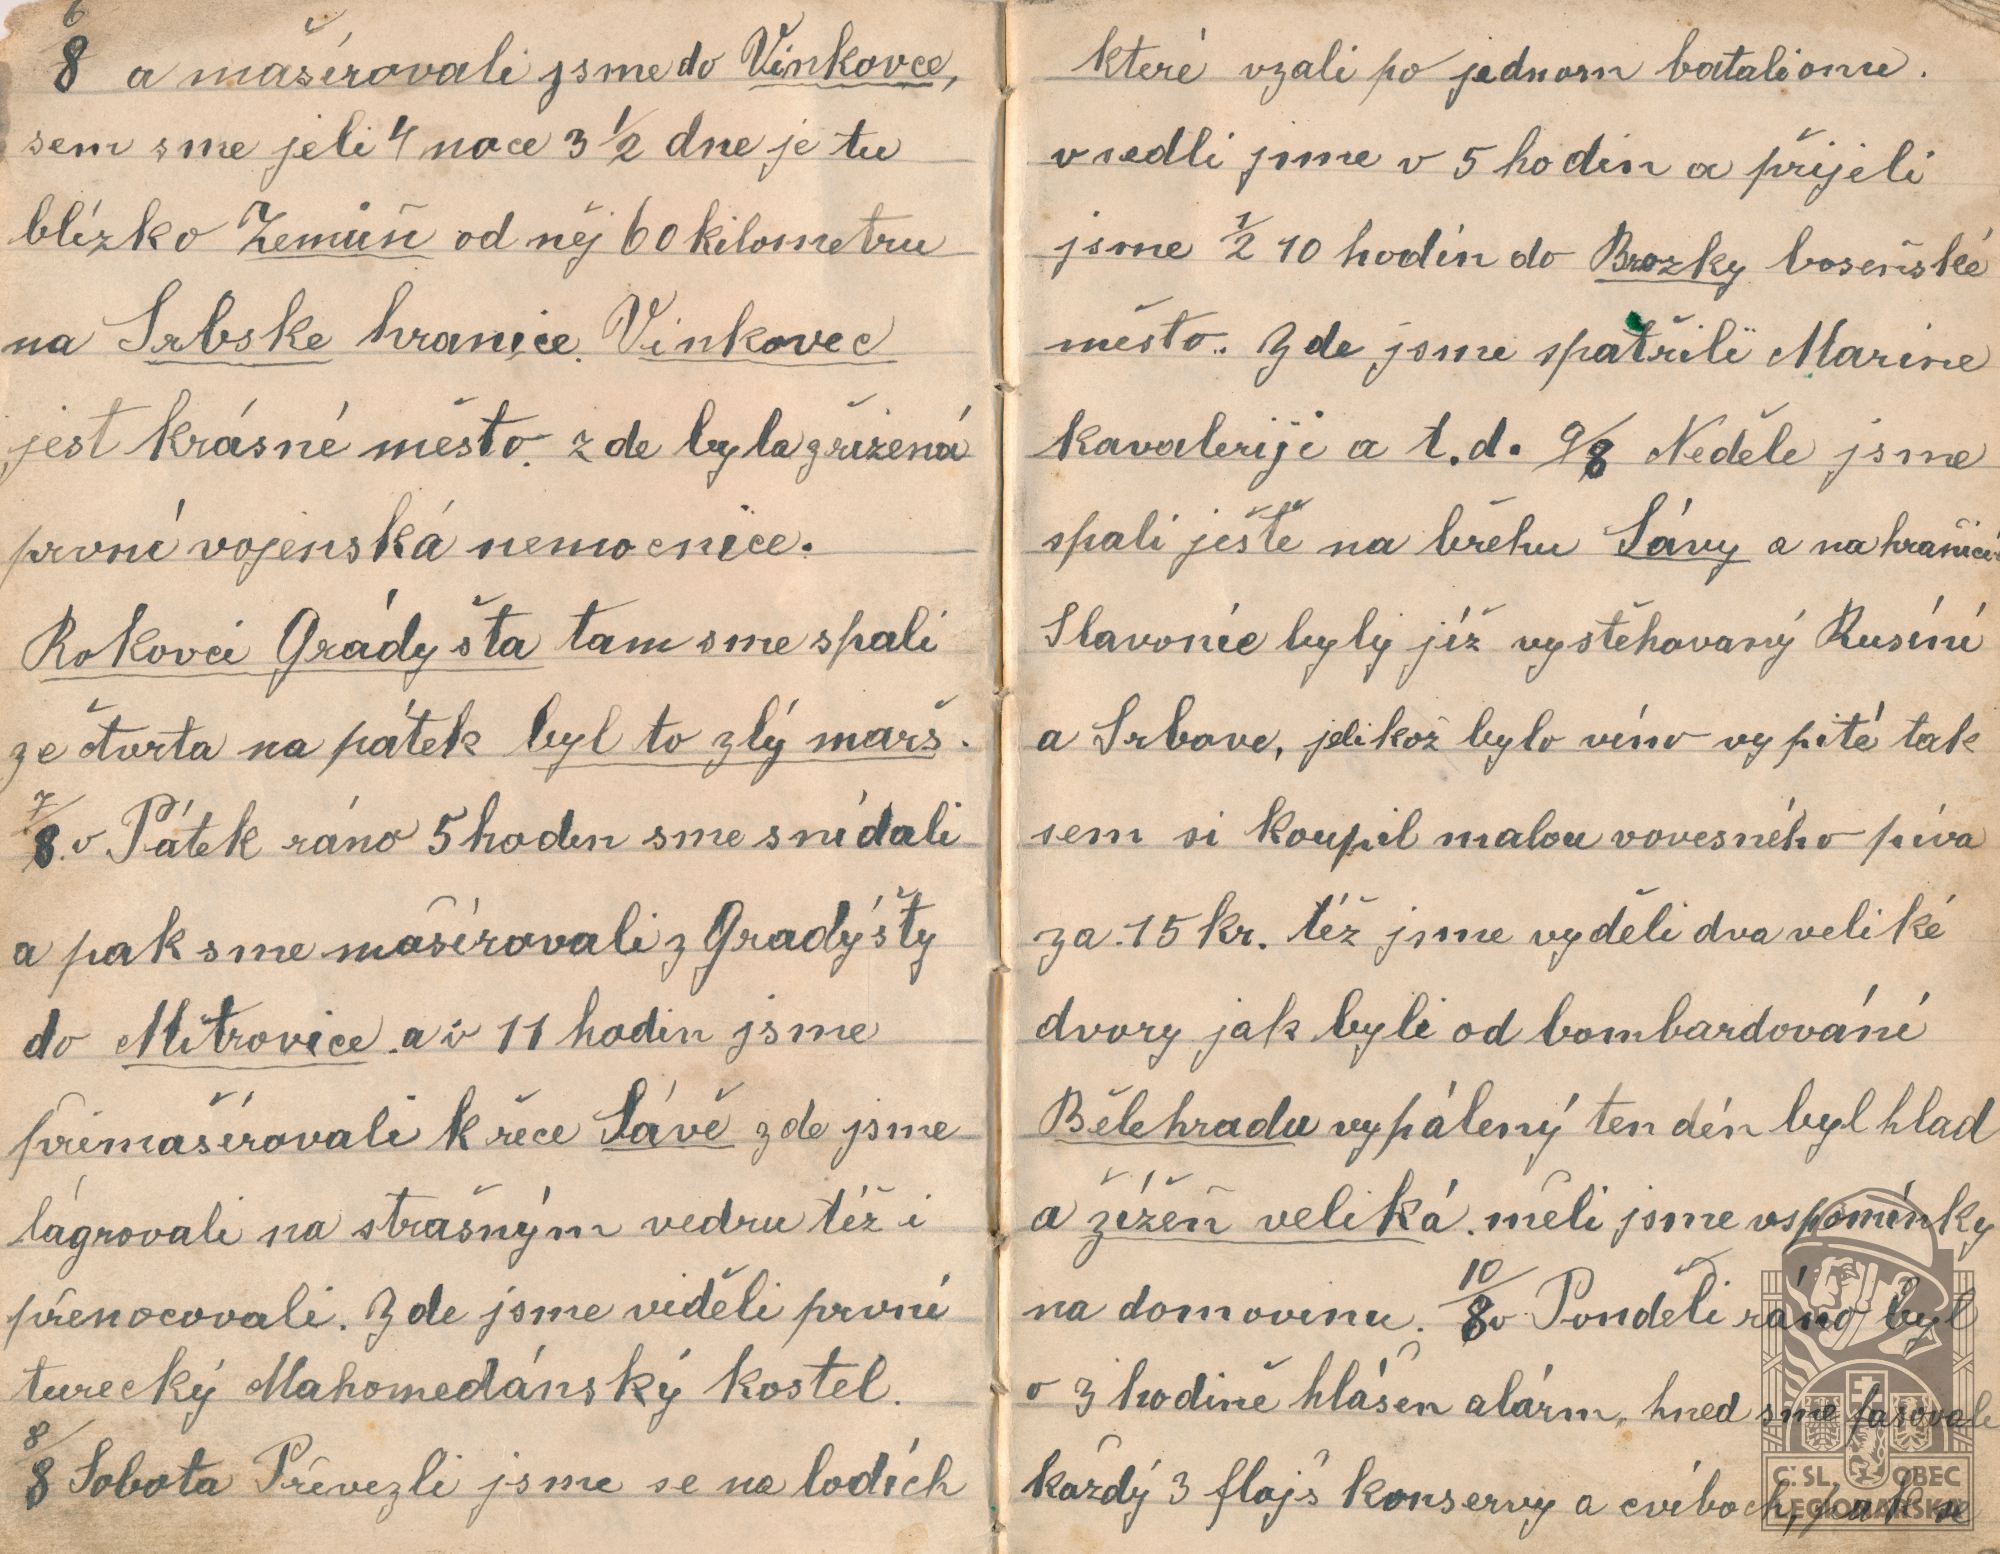 6/8 a mašírovali jsme do Vinkovce,
sem sme jeli 4 noce 3 1/2 dne je tu
blízko Zemuň od něj 60 kilometru
na Srbske hranice. Vinkovec
jest krásné město. zde byla zřízená
první vojenská nemocnice.
Rokovci Grádyšta tam sme spali
ze čtvrta na pátek byl to zlý marš.
7/8. v Pátek ráno 5 hodin sme snídali
a pak sme mašírovali z Gradýšty
do Mitrovice. a v 11 hodin jsme
přimašírovali k řece Sávě zde jsme
lágrovali na strašným vedru též i
přenocovali. Zde jsme viděli první
turecký Mahomedánský kostel.
8/8 Sobota Přívezli jsme se na lodích
které vzali po jednom batalionu.
vsedli jsme v 5 hodin a přijeli
jsme 1/2 10 hodin do Brozky boseňské
město. Zde jsme spatřili Marine
kavaleriji a t.d. 9/8 Neděle jsme
spali ješte na břehu Sávy a na hranici
Slavonie byly již vystěhovaný Rusíni
a Srbove, jelikož bylo víno vypité tak
sem si koupil malou vovesného piva
za 15 kr. též jsme vyděli dva veliké
dvory jak byli od bombardování
Bělehradu vypálený ten dén byl hlad
a žížeň veliká. měli jsme vspomínky
na domovinu. 10/8 v Pondělí ráno byl
v 3 hodině hlášen alárm, hned sme fasovali
každý 3 flajš konservy a cviboch, pak se
Č. SL. OBEC
LEGIONÁŘSKÁ